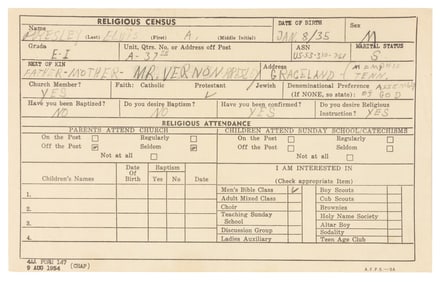 RELIGIOUS CENSUS
Name DATE OF BIRTH Sex
PRESLEY (Last) ELVIS (First) A. (Middle Initial) JAN 8/35 M
Grade Unit, Qtrs. No. or Address off Post ASN MARITAL STATUS
E-1 A-37th US-53-310-761 S
NEXT OF KIN Address MEMPHIS
FATHER-MOTHER- MR. VERNON PRESLEY GRACELAND TENN.
Church Member? Faith: Catholic Protestant Jewish Denominational Preference ASSEMBLY
YES ✓ (If NONE, so state) OF GOD
Have you been Baptized? Do you desire Baptism? Have you been confirmed? Do you desire Religious
NO NO NO Instruction? YES
RELIGIOUS ATTENDANCE
PARENTS ATTEND CHURCH CHILDREN ATTEND SUNDAY SCHOOL/CATECHISMS
On the Post Regularly On the Post Regularly
Off the Post Seldom Off the Post Seldom
Not at all Not at all
Children's Names Date Of Birth Baptism Yes No Date I AM INTERESTED IN
(Check appropriate Item)
1. Men's Bible Class ✓ Boy Scouts
Adult Mixed Class Cub Scouts
2. Choir Brownies
3. Teaching Sunday School Holy Name Society
Altar Boy
4. Discussion Group Sodality
Ladies Auxiliary Teen Age Club
4AA FORM 147 (CHAP)
9 AUG 1954